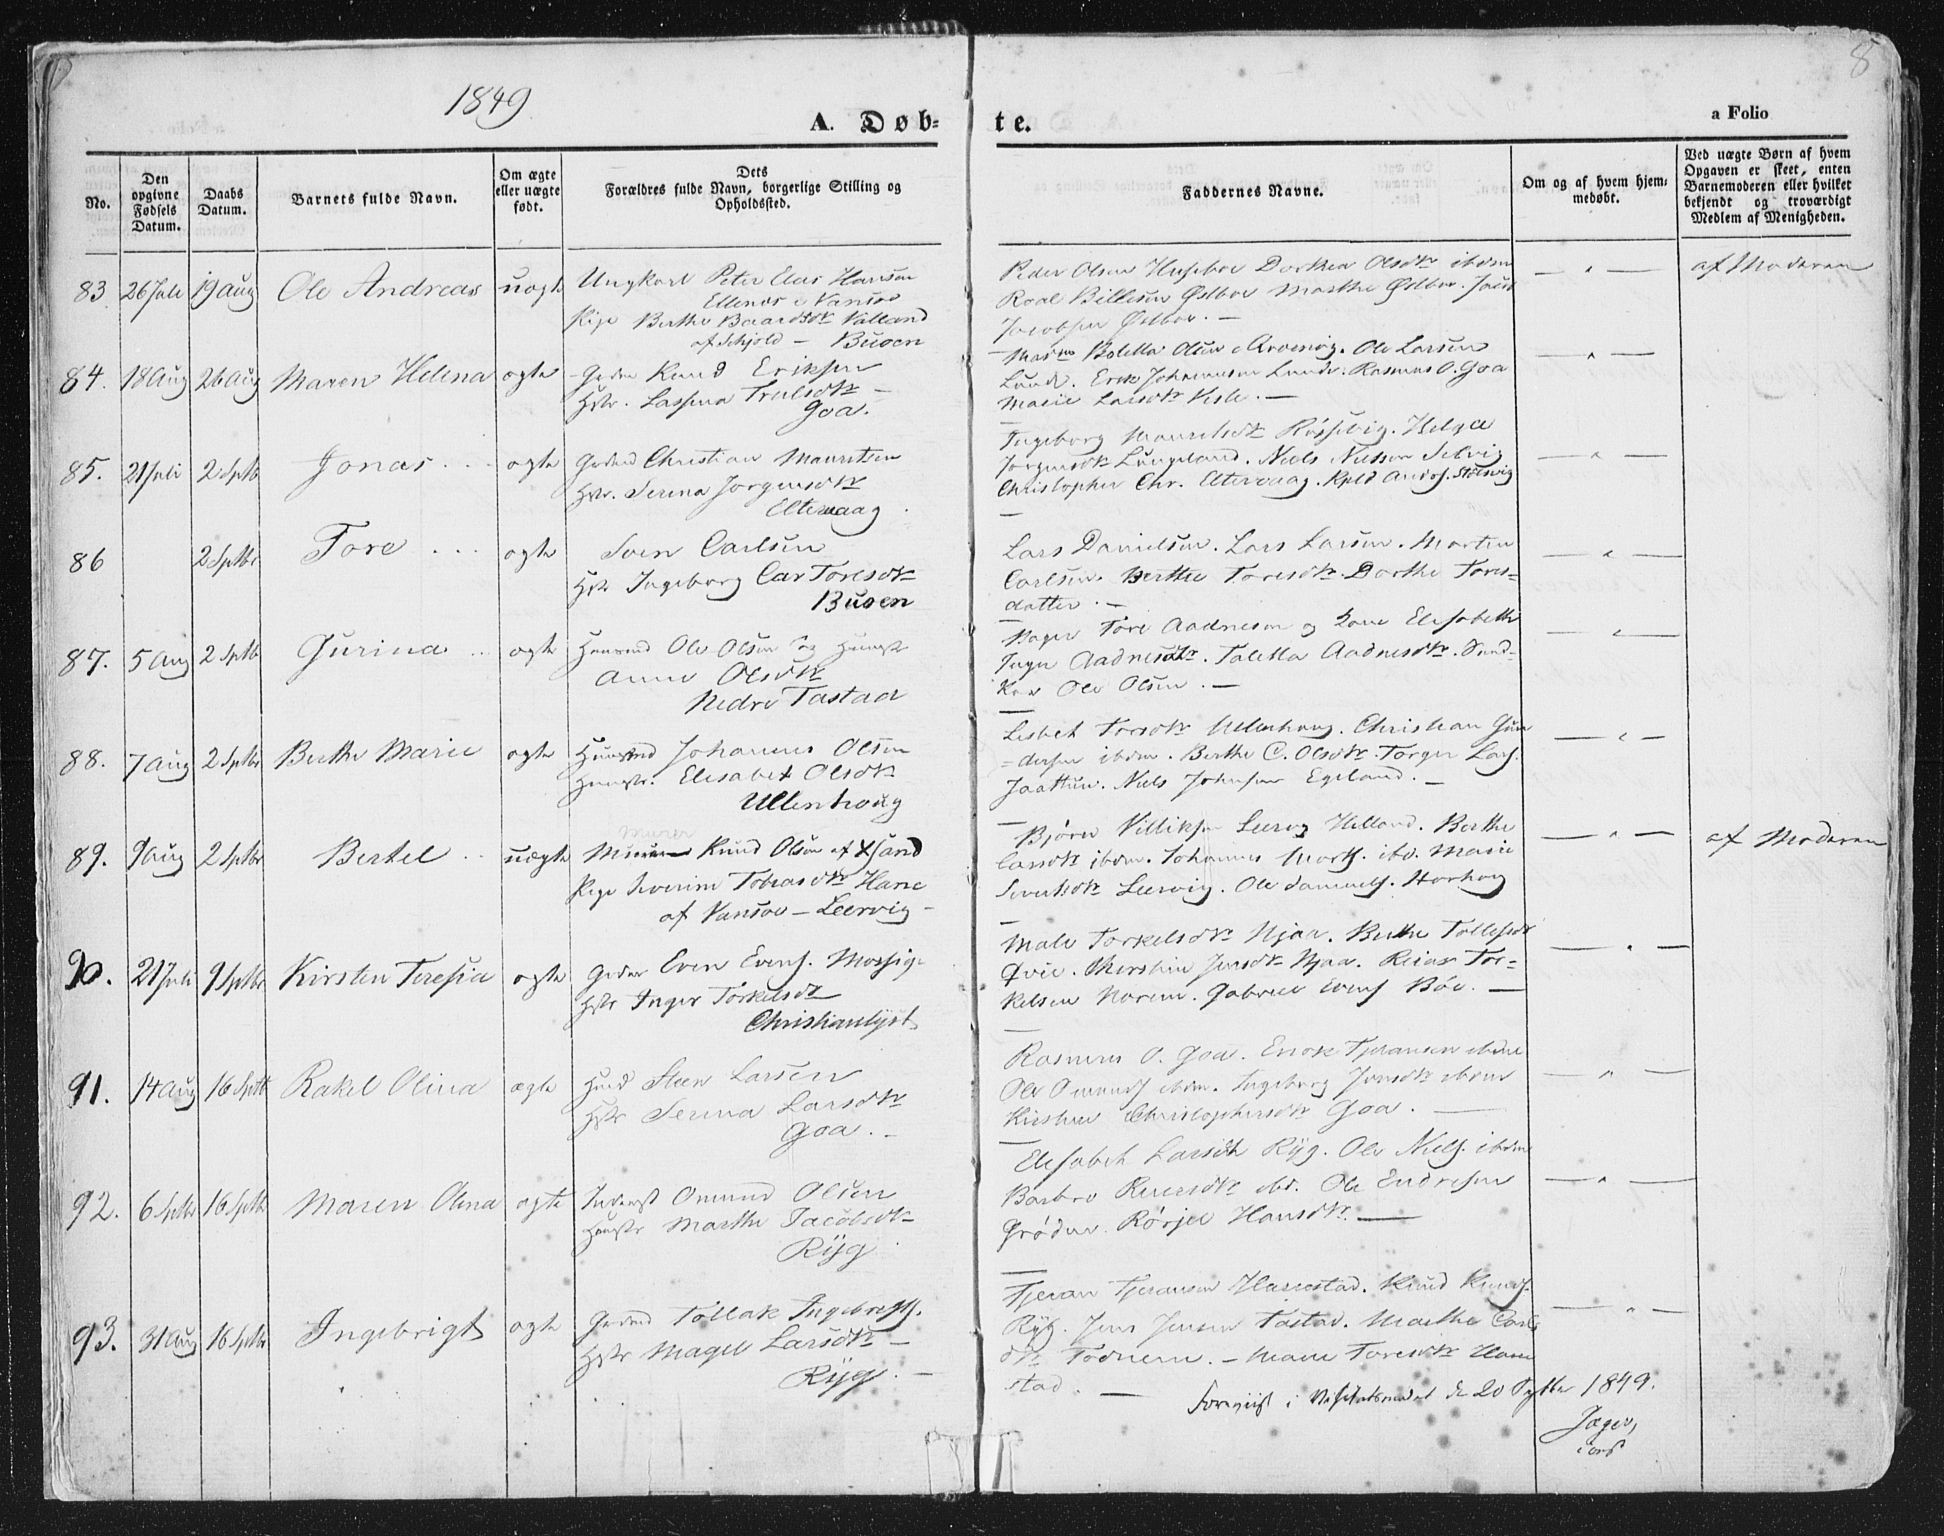 8
1849
A. Døb-
te.
a Folio
No.
Den opgivne Fødsels Datum.
Daabs Datum.
Barnets fulde Navn.
Om ægte eller uægte født.
Dets Forældres fulde Navn, borgerlige Stilling og Opholdssted.
Faddernes Navne.
Om og af hvem hjem- medøbt.
Ved uægte Børn af hvem Opgaven er skeet, enten Barnemoderen eller hvilket bekjendt og troværdigt Medlem af Menigheden.
83 26 Juli 19 Aug Ole Andreas uægte Ungkarl Peter Elias Hansen
Vansøe
Pige Berthe Baardsdtr Valland
af Schjold — Buøen
Peder Olsen Husebøe Dorthea Olsdtr ibdm
Roal Billesen Østbøe Marthe Østbøe.
Jacobsen Østbøe. —
— " —
af Moderen
84. 18 Aug 26 Aug Maren Helena ægte Knud Eriksen
Hstr. Trulsdtr —
Goa.
Boletta Olsen Ole Larsen
Lunde. Erik Johannesen Lunde. Rasmus O. Goa
Marie Larsdtr —
— " —
85. 21 Juli 2 Sptbr Jonas ægte Christian Mauritzen
Hstr. Serina Jørgensdtr
Eltervaag
Ingeborg Helga
Jørgensdtr Lungeland. Niels Nielsen Selvig
Christopher Chr. Eltervaag.
— " —
86 2 Sptbr Tore ægte Sven Carlsen
Hstr Ingeborg Toresdtr
Buøen
Lars Danielsen. Lars Larsen. Morten
Carlsen. Berthe Toresdtr. Dorthe Tores-
datter. —
— " —
87. 5 Aug 2 Sptbr Gurina ægte Huusmd Ole Olsen og Hunst
Anne Olsdtr
Nedre Tastad
Bager Tore Aadnesen og Kone Elisabeth
Aadnesdtr. Taletta Aadnesdtr.
Ole Olsen. —
— " —
88. 7 Aug 2 Sptbr Berthe Marie ægte Huusmd Johannes Olsen
Hunstr. Elisabet Olsdtr
Ullenhoug
Lisbet Toresdtr Ullenhoug. Christian Gun
-dersen ibdm. Berthe C. Olsdtr. Torger Lars.
Jaattun. Niels Johnsen Egeland. —
— " —
89. 9 Aug 2 Sptbr Bertel uægte Murer Knud Olsen af
Pige Severine Tobiasdtr Hane
af Vansøe — Leervig —
Bjørn Villiksen Leervig Helland. Berthe
Larsdtr ibdm. Johannes ibd. Marie
Sivertsdtr Leervig. Ole Samuels.
— " —
af Moderen
90. 21 Juli 9 Sptbr Kirsten Teresia ægte Even Evens. Mossige
Hstr Inger Torkelsdtr
Christianslyst
Male Torkelsdtr Njaa. Berthe Tollefsdtr
Qvie. Jensdtr Njaa. Reiar Tor-
kelsen Norem. Gabriel Evens Bøe. —
— " —
91. 14 Aug 16 Sptbr Rakel Olina ægte Hmd Steen Larsen
Hstr Serina Larsdtr
Goa. —
Rasmus O. Goa. Enok Tjeransen ibdm
Ole Omunds ibdm. Ingeborg Jonsdtr ibdm
Kirsten Christophersdtr Goa. —
— " —
92. 6 Sptbr 16 Sptbr Maren Olena ægte Inderst Omund Olsen
Hunstr Marthe Jacobsdtr
Ryg
Elisabeth Larsdtr Ryg. Ole Niels. ibdm
Barbro Reiersdtr ibd. Ole Endresen
Grødem. Hansdtr. —
— " —
93. 31 Aug 16 Sptbr Ingebrigt ægte Tollak Ingebrets.
Hstr Magel Larsdtr —
Ryg. —
Tjeran Tjeransen Harrestad. Knud Knuds.
Ryg. Jens Jensen Tastad. Marthe Carls
dtr Todnem. — Toresdtr
stad. —
— " —
Foreviist i Visitatsmødet d. 20 Sptbr 1849.
Jæger,